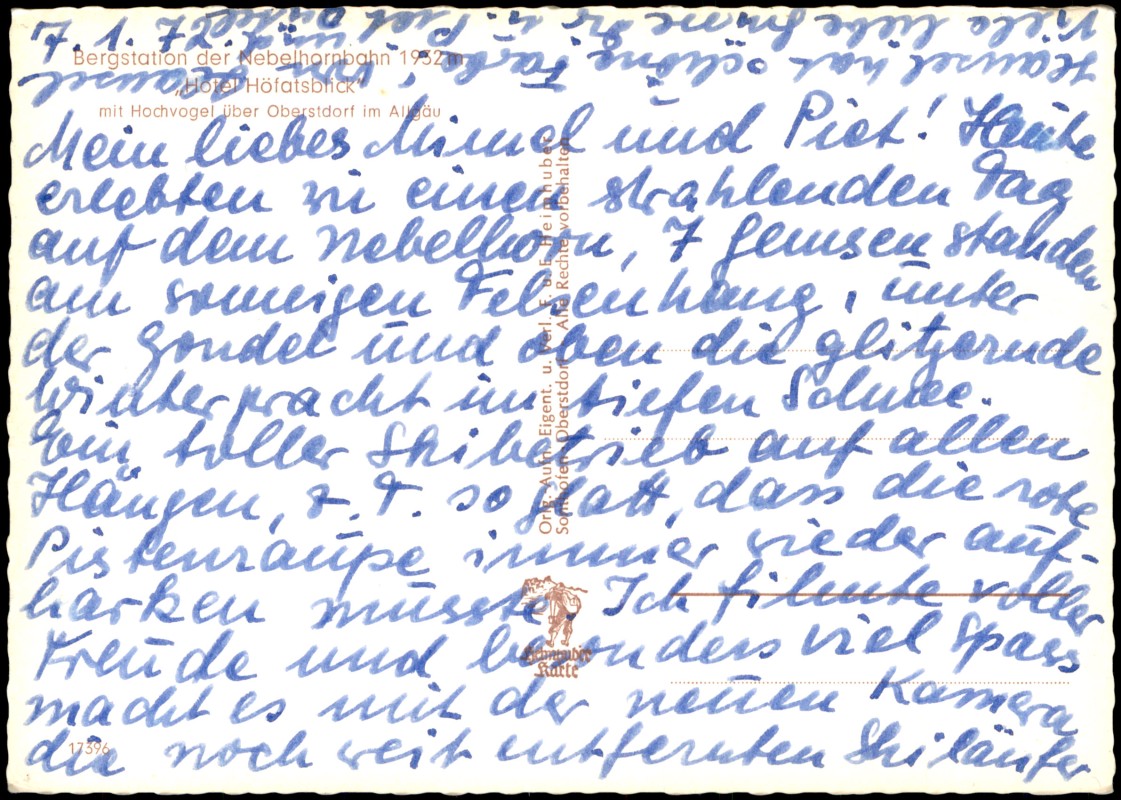 7. 1. 72.
Bergstation der Nebelhornbahn 1932 m
„Hotel Höfatsblick“
mit Hochvogel über Oberstdorf im Allgäu
Mein liebes Mimel und Piet! Heute
erlebten wir einen strahlenden Tag
auf dem Nebelhorn, 7 Gemsen standen
am sonnigen Felsenhang, unter
der Gondel und oben die glitzernde
Winterpracht im tiefen Schnee.
Ein toller Skibetrieb auf allen
Hängen, z. T. so glatt, dass die rote
Pistenraupe immer wieder auf-
harken musste. Ich filmte voller
Freude und besonders viel Spass
macht es mit der neuen Kamera
die noch weit entfernten Skiläufer
Viele liebe Grüsse Dir u. Piet
Hänsel hat schöne Farbe,
Orig. Aufn. Eigent. u. Verl. F. u. E. Heimhuber
Sonthofen Oberstdorf Alle Rechte vorbehalten
Heimhuber
Karte
17396